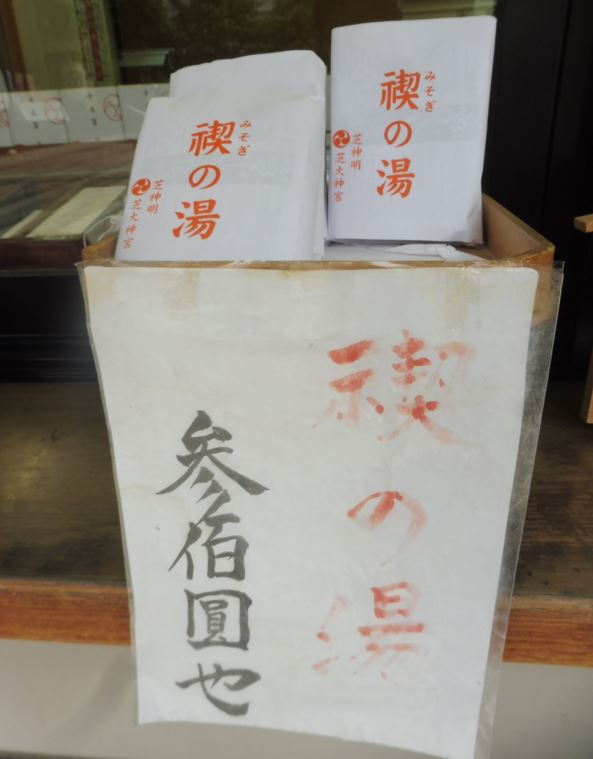 禊の湯
みそぎ
芝神明
芝大神宮
禊の湯
みそぎ
芝神明
芝大神宮
禊の湯
参佰圓也